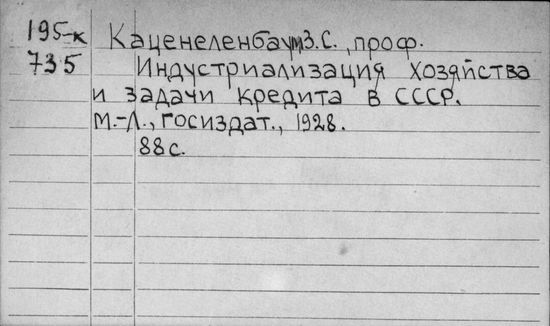 195-к Каценеленбаум З.С., проф.
735 Индустриализация хозяйства
и задачи кредита в СССР.
М.-Л., госиздат., 1928.
88 с.